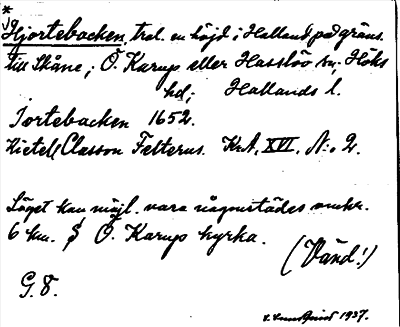 *
Hjortebacken, trol. en höjd i Halland, på gräns.
till Skåne; Ö. Karup eller Hasslöv sn, Höks
hd; Hallands l.
Jortebacken 1652.
Kietell Classon Felterus. KrA, XVI, N:o 2.
Läget kan möjl. vara någonstädes omkr.
6 km. S Ö. Karups kyrka.
(Vänd!)
G. F.
1937.